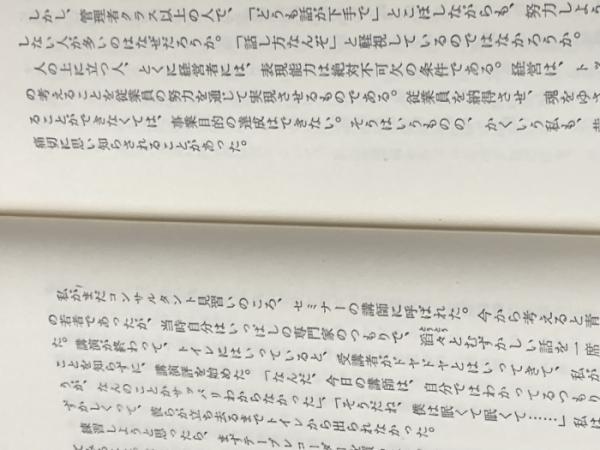 しかし、管理者クラス以上の人で、「どうも話が下手で」とこぼしながらも、努力しよう
しない人が多いのはなぜだろうか。「話し方なんぞ」と軽視しているのではなかろうか。
人の上に立つ人、とくに経営者には、表現能力は絶対不可欠の条件である。経営は、トッ
の考えることを従業員の努力を通じて実現させるものである。従業員を納得させ、魂をゆさ
ることができなくては、事業目的の達成はできない。そうはいうものの、かくいう私も、
痛切に思い知らされることがあった。
私がまだコンサルタント見習いのころ、セミナーの講師に呼ばれた。今から考えると青
の若者であったが、当時自分はいっぱしの専門家のつもりで、滔々とむずかしい話を一席
た。講演が終わって、トイレにはいっていると、受講者がドヤドヤとはいってきて、私が
ことを知らずに、講演評を始めた。「なんだ、今日の講師は、自分ではわかってるつもり
うが、なんのことかサッパリわからなかった」、「そうだね、僕は眠くて眠くて……」私は
ずかしくって、彼らが立ち去るまでトイレから出られなかった。
練習しようと思ったら、まずテープレコーダーを